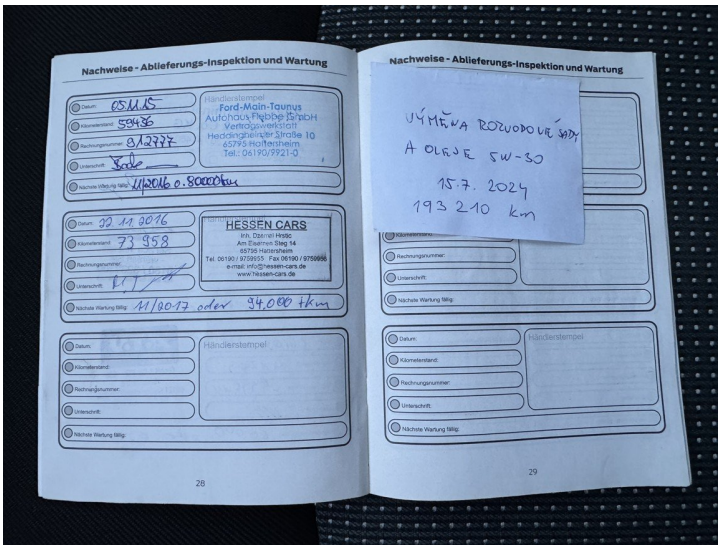 Nachweise - Ablieferungs-Inspektion und Wartung
Datum: 05.11.15
Kilometerstand: 59436
Rechnungsnummer: 912777
Unterschrift:
Nächste Wartung fällig: 11/2016 o. 80000km
Händlerstempel
Ford-Main-Taunus
Autohaus Flebbe GmbH
Vertragswerkstatt
Heddingheimer Straße 10
65795 Hattersheim
Tel.: 06190/9921-0
Datum: 22.11.2016
Kilometerstand: 73 958
Rechnungsnummer:
Unterschrift:
Nächste Wartung fällig: 11/2017 oder 94,000 tkm
HESSEN CARS
Inh. Dzemail Hrstic
Am Eisernen Steg 14
65795 Hattersheim
Tel. 06190 / 9759955 Fax 06190 / 9759956
e-mail: info@hessen-cars.de
www.hessen-cars.de
Datum:
Kilometerstand:
Rechnungsnummer:
Unterschrift:
Nächste Wartung fällig:
Händlerstempel
28
Nachweise - Ablieferungs-Inspektion und Wartung
VÝMĚNA ROZVODOVÉ SADY
A OLEJE 5W-30
15.7. 2024
193 210 km
Kilometerstand:
Rechnungsnummer:
Unterschrift:
Nächste Wartung fällig:
Datum:
Kilometerstand:
Rechnungsnummer:
Unterschrift:
Nächste Wartung fällig:
Händlerstempel
29